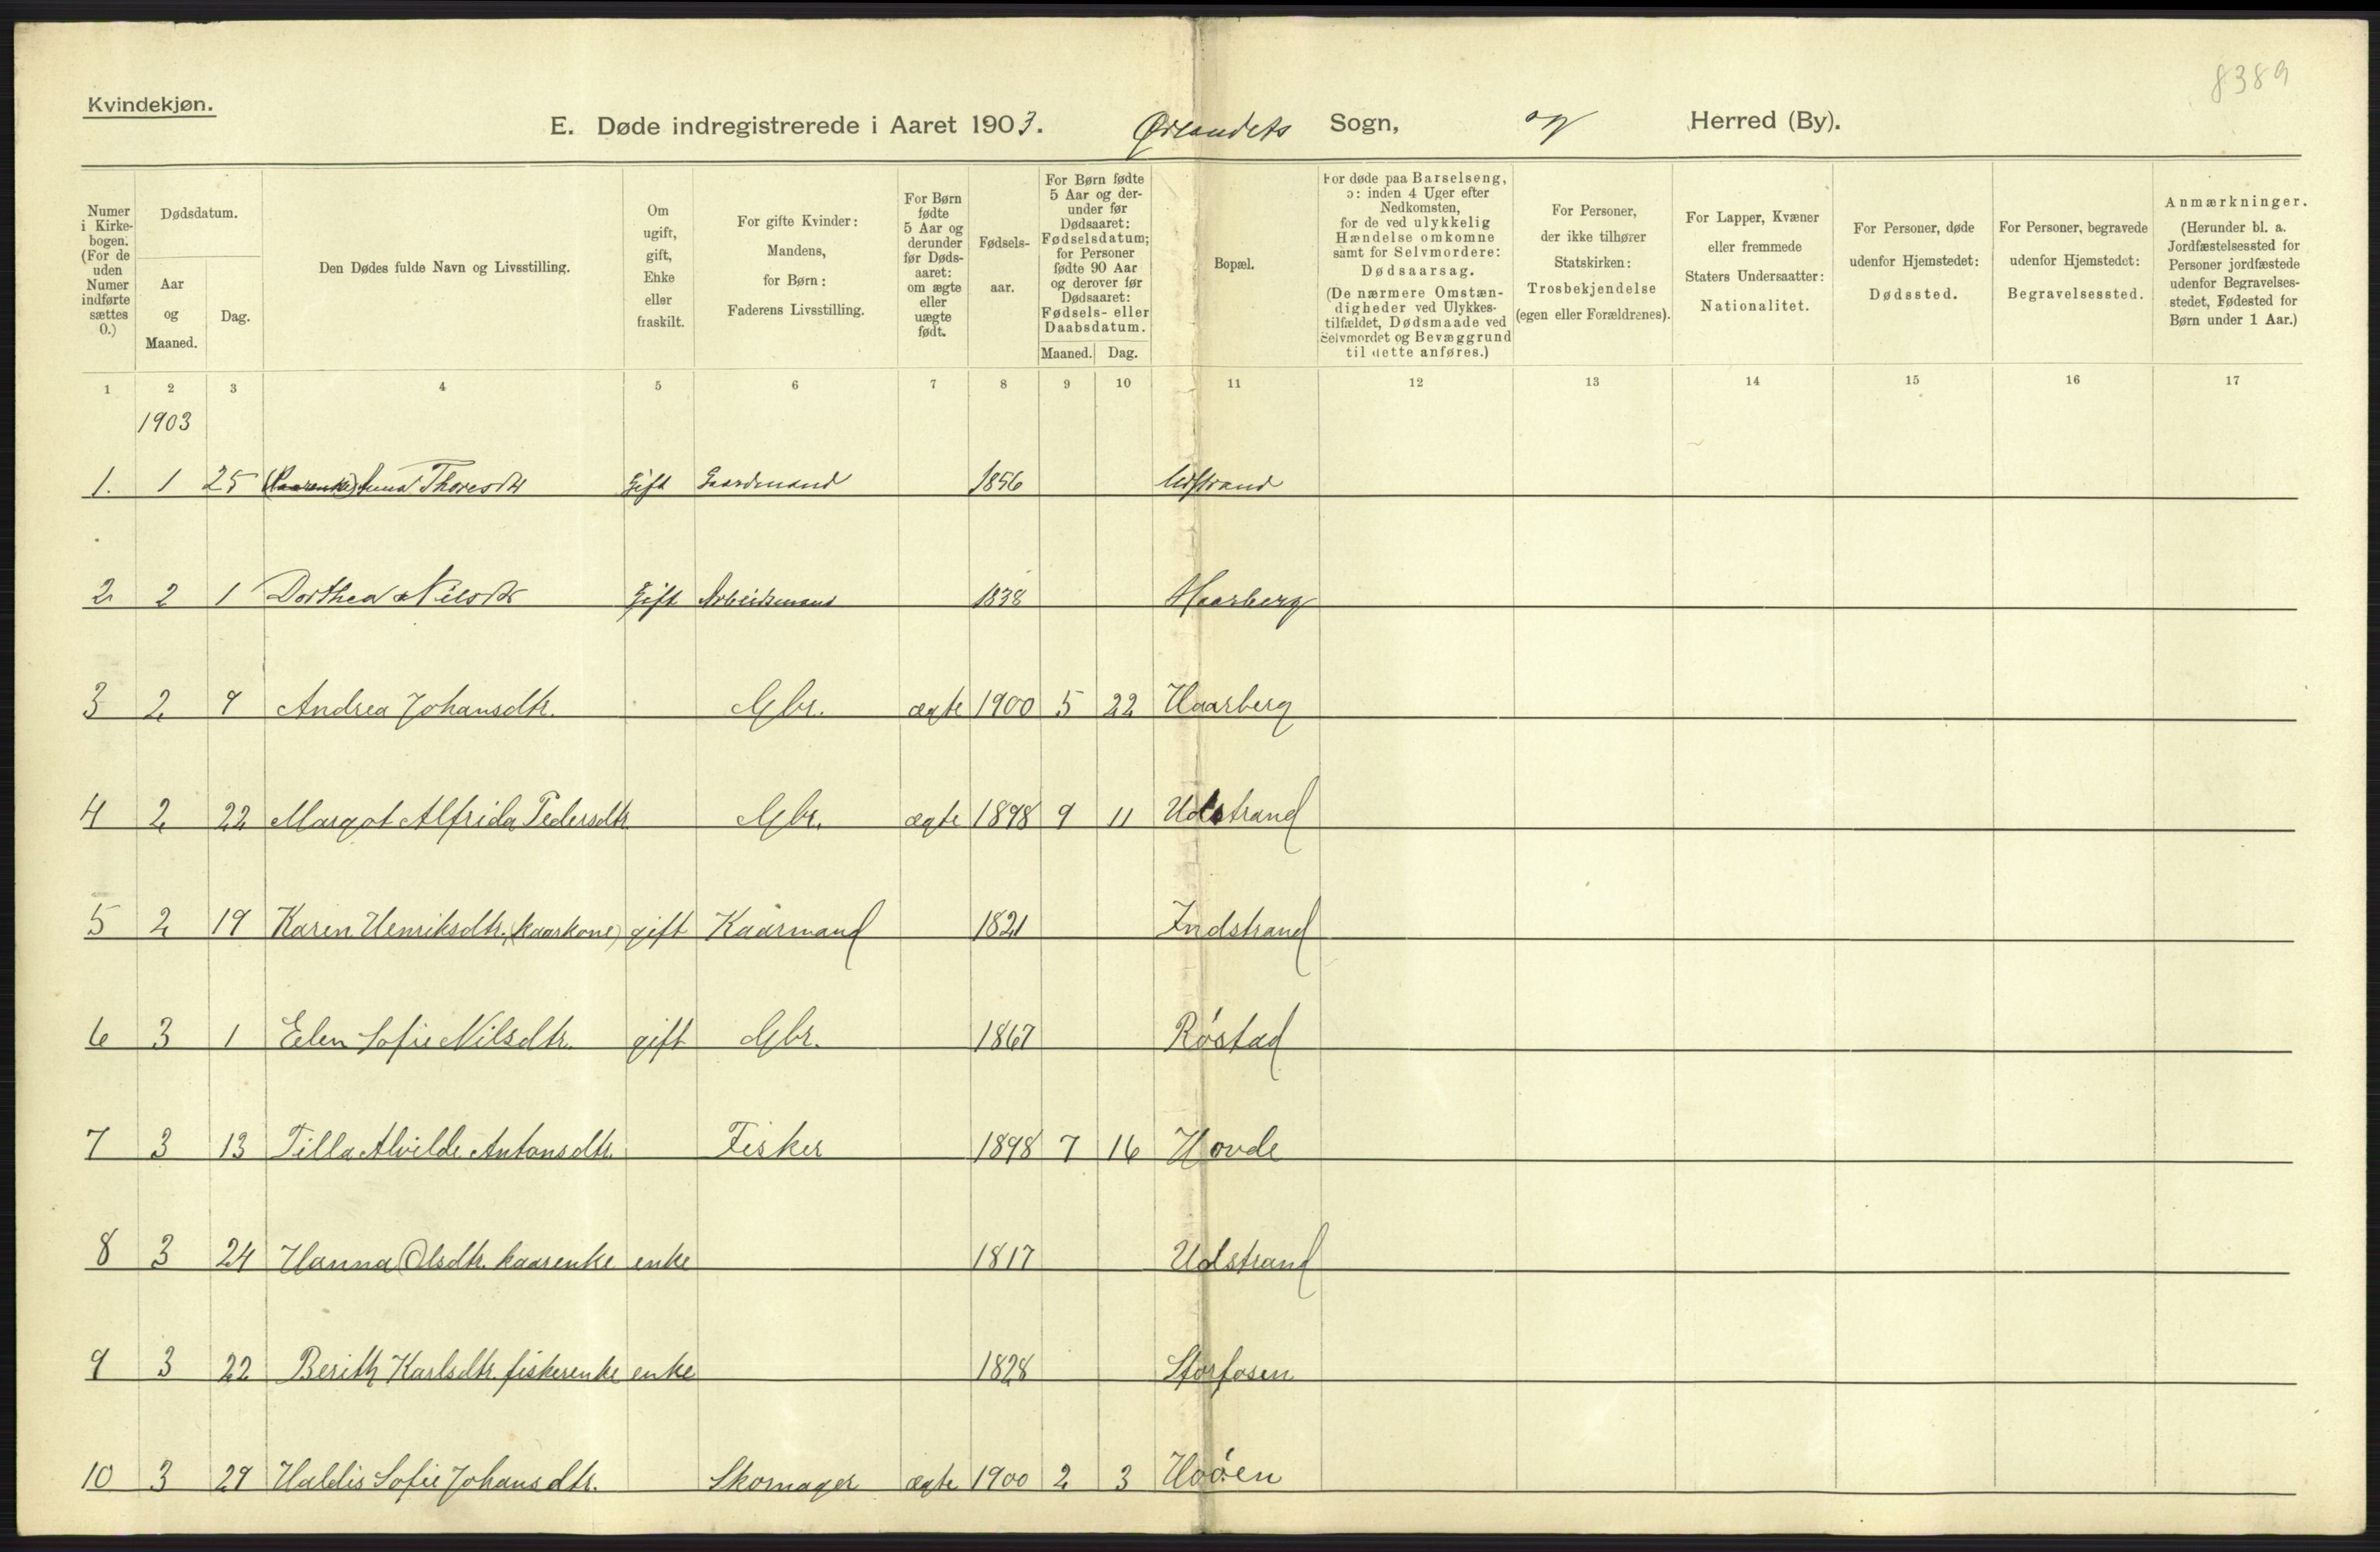 8389
Kvindekjøn.
E. Døde indregistrerede i Aaret 1903. Ørlandets Sogn, og Herred (By).
Numer i Kirkebogen. (For de uden Numer indførte sættes 0.)
Dødsdatum.
Aar og Maaned.
Dag.
Den Dødes fulde Navn og Livsstilling.
Om ugift, gift, Enke eller fraskilt.
For gifte Kvinder: Mandens, for Børn: Faderens Livsstilling.
For Børn fødte 5 Aar og derunder før Dødsaaret: om ægte eller uægte født.
Fødselsaar.
For Børn fødte 5 Aar og derunder før Dødsaaret: Fødselsdatum; for Personer fødte 90 Aar og derover før Dødsaaret: Fødsels- eller Daabsdatum.
Maaned. Dag.
Bopæl.
For døde paa Barselseng, ɔ: inden 4 Uger efter Nedkomsten, for de ved ulykkelig Hændelse omkomne samt for Selvmordere: Dødsaarsag. (De nærmere Omstændigheder ved Ulykkestilfældet, Dødsmaade ved Selvmordet og Bevæggrund til dette anføres.)
For Personer, der ikke tilhører Statskirken: Trosbekjendelse (egen eller Forældrenes).
For Lapper, Kvæner eller fremmede Staters Undersaatter: Nationalitet.
For Personer, døde udenfor Hjemstedet: Dødssted.
For Personer, begravede udenfor Hjemstedet: Begravelsessted.
Anmærkninger. (Herunder bl. a. Jordfæstelsessted for Personer jordfæstede udenfor Begravelsesstedet, Fødested for Børn under 1 Aar.)
1 2 3 4 5 6 7 8 9 10 11 12 13 14 15 16 17
1903
1. 1 25 Anna Thoresdtr Gift Gaardmand 1856 Udstrand
2 2 1 Dorthea Nilsdtr Gift Arbeidsmand 1838 Haarberg
3 2 9 Andrea Johansdtr. Gbr. ægte 1900 5 22 Haarberg
4 2 22 Margot Alfrida Pedersdtr. Gbr. ægte 1898 9 11 Udstrand
5 2 19 Karen Henriksdtr. (kaarkone) gift Kaarmand 1821 Indstrand
6 3 1 Elen Sofie Nilsdtr. gift Gbr. 1867 Røstad
7 3 13 Tilla Alvilde Antonsdtr. Fisker 1898 7 16 Hovde
8 3 24 Hanna Olsdtr. kaarenke enke 1817 Udstrand
9 3 22 Berith Karlsdtr. fiskerenke enke 1828 Storfosen
10 3 29 Haldis Sofie Johansdtr. Skomager ægte 1900 2 3 Hoøen